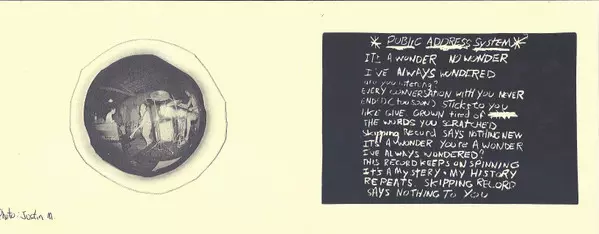 * PUBLIC ADDRESS SYSTEM *
IT'S A WONDER NO WONDER
I'VE ALWAYS WONDERED
are you listening?
EVERY CONVERSATION WITH YOU NEVER
ENDED (TOO SOON) STICKS TO YOU
LIKE GLUE. GROWN tired of
THE WORDS YOU SCRATCHED
Skipping Record SAYS NOTHING NEW
IT'S A WONDER YOU'RE A WONDER
I'VE ALWAYS WONDERED?
THIS RECORD KEEPS ON SPINNING
IT'S A MYSTERY • MY HISTORY
REPEATS. SKIPPING RECORD
SAYS NOTHING TO YOU
Photo: Justin M.